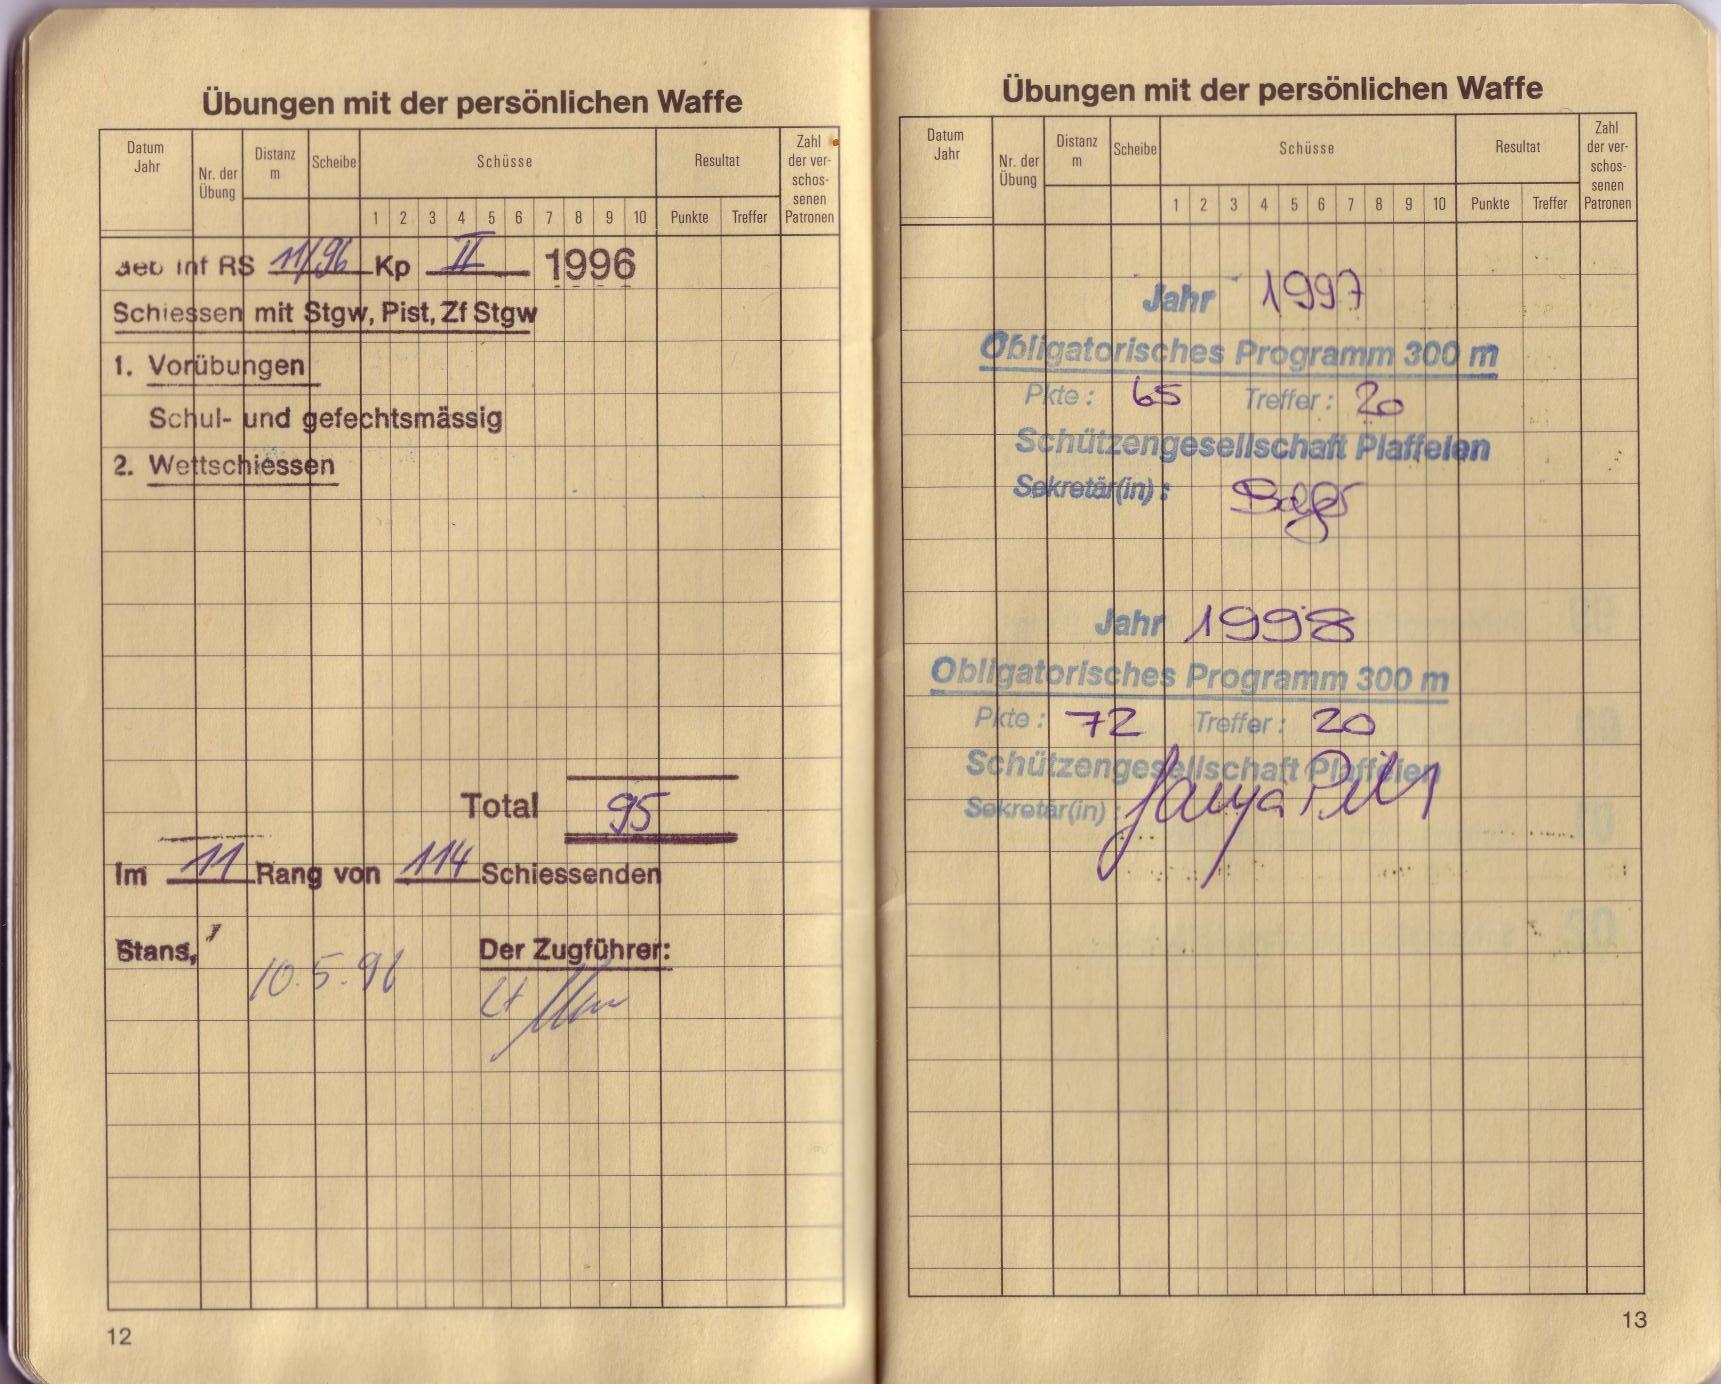 Übungen mit der persönlichen Waffe
Datum Jahr
Nr. der Übung
Distanz m
Scheibe
Schüsse
Resultat
Zahl der verschossenen Patronen
1 2 3 4 5 6 7 8 9 10
Punkte Treffer
Geb Inf RS 11/96 Kp II 1996
Schiessen mit Stgw, Pist, Zf Stgw
1. Vorübungen
Schul- und gefechtsmässig
2. Wettschiessen
Total 95
Im 11 Rang von 114 Schiessenden
Stans, 10.5.96
Der Zugführer:
Lt
12
Übungen mit der persönlichen Waffe
Datum Jahr
Nr. der Übung
Distanz m
Scheibe
Schüsse
Resultat
Zahl der verschossenen Patronen
1 2 3 4 5 6 7 8 9 10
Punkte Treffer
Jahr 1997
Obligatorisches Programm 300 m
Pkte: 65 Treffer: 20
Schützengesellschaft Plaffeien
Sekretär(in):
Jahr 1998
Obligatorisches Programm 300 m
Pkte: 72 Treffer: 20
Schützengesellschaft Plaffeien
Sekretär(in):
13